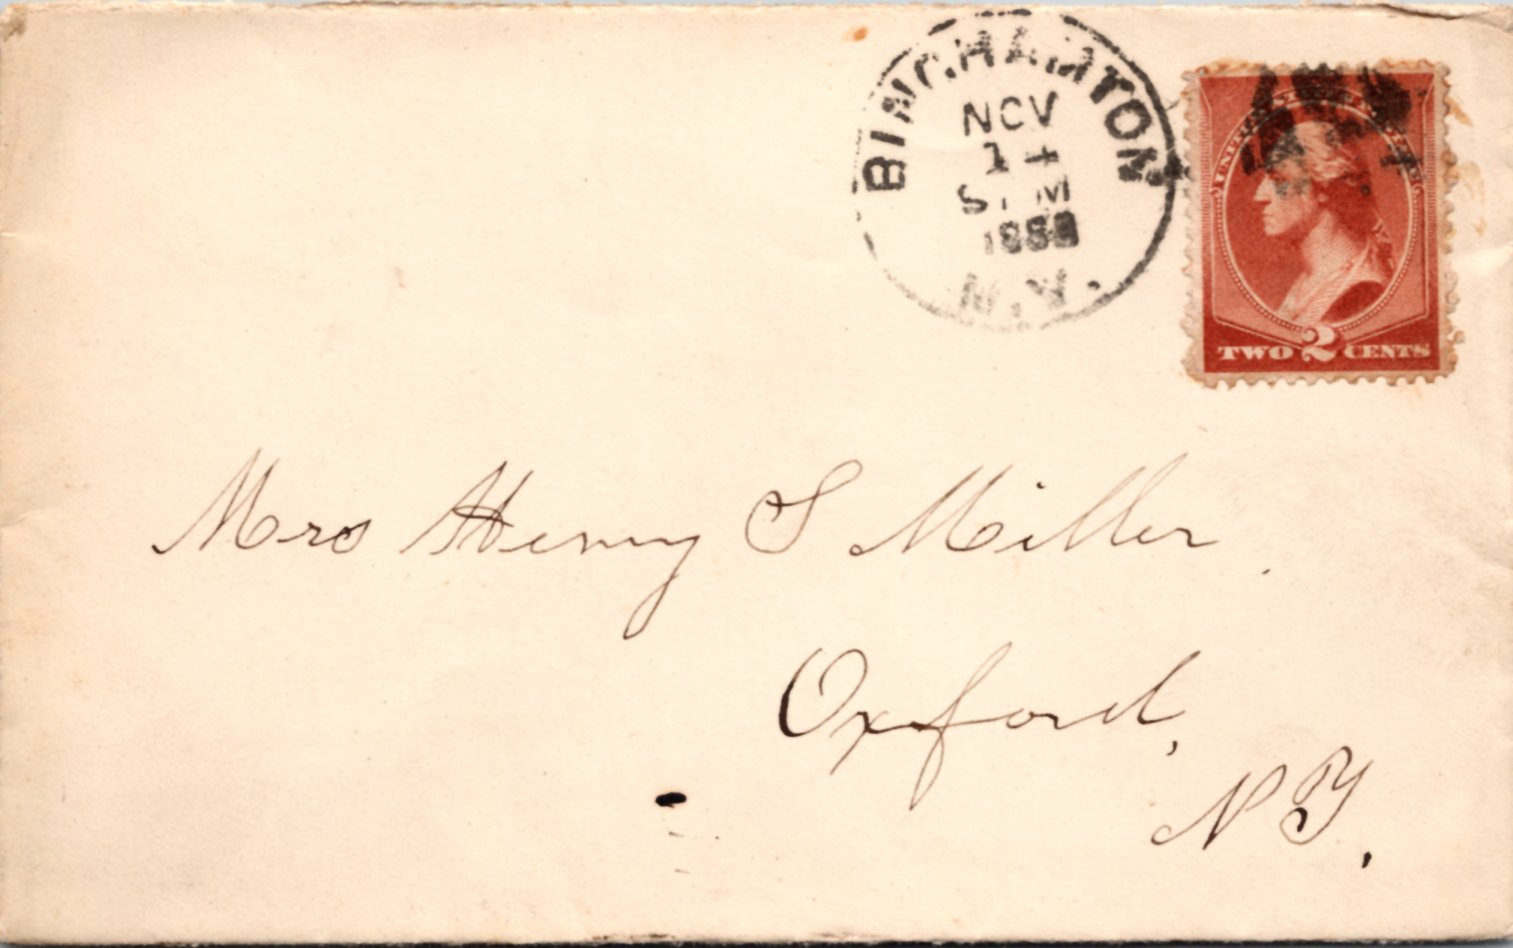 BINGHAMTON
NOV
14
M
N.Y.
UNITED
TWO 2 CENTS
Mrs Henry S Miller.
Oxford,
N Y,